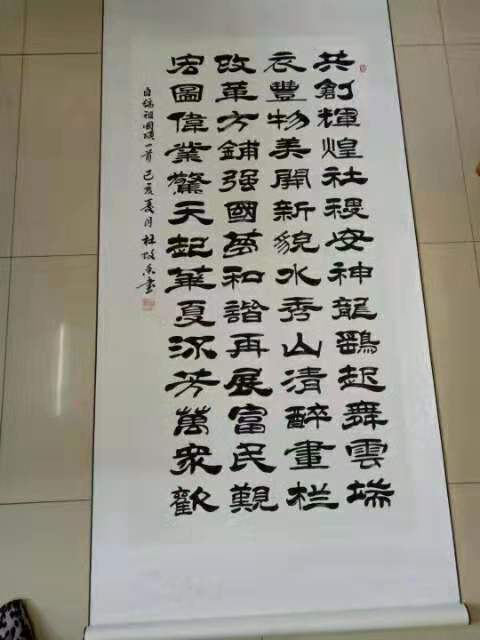 共創輝煌社稷安神龍起舞雲端
衣豐物美開新貌水秀山清醉畫栏
改革方鋪强國夢和諧再展富民觀
宏圖偉業驚天起華夏流芳萬衆歡
自編祖國頌一首 己亥夏月 杜書